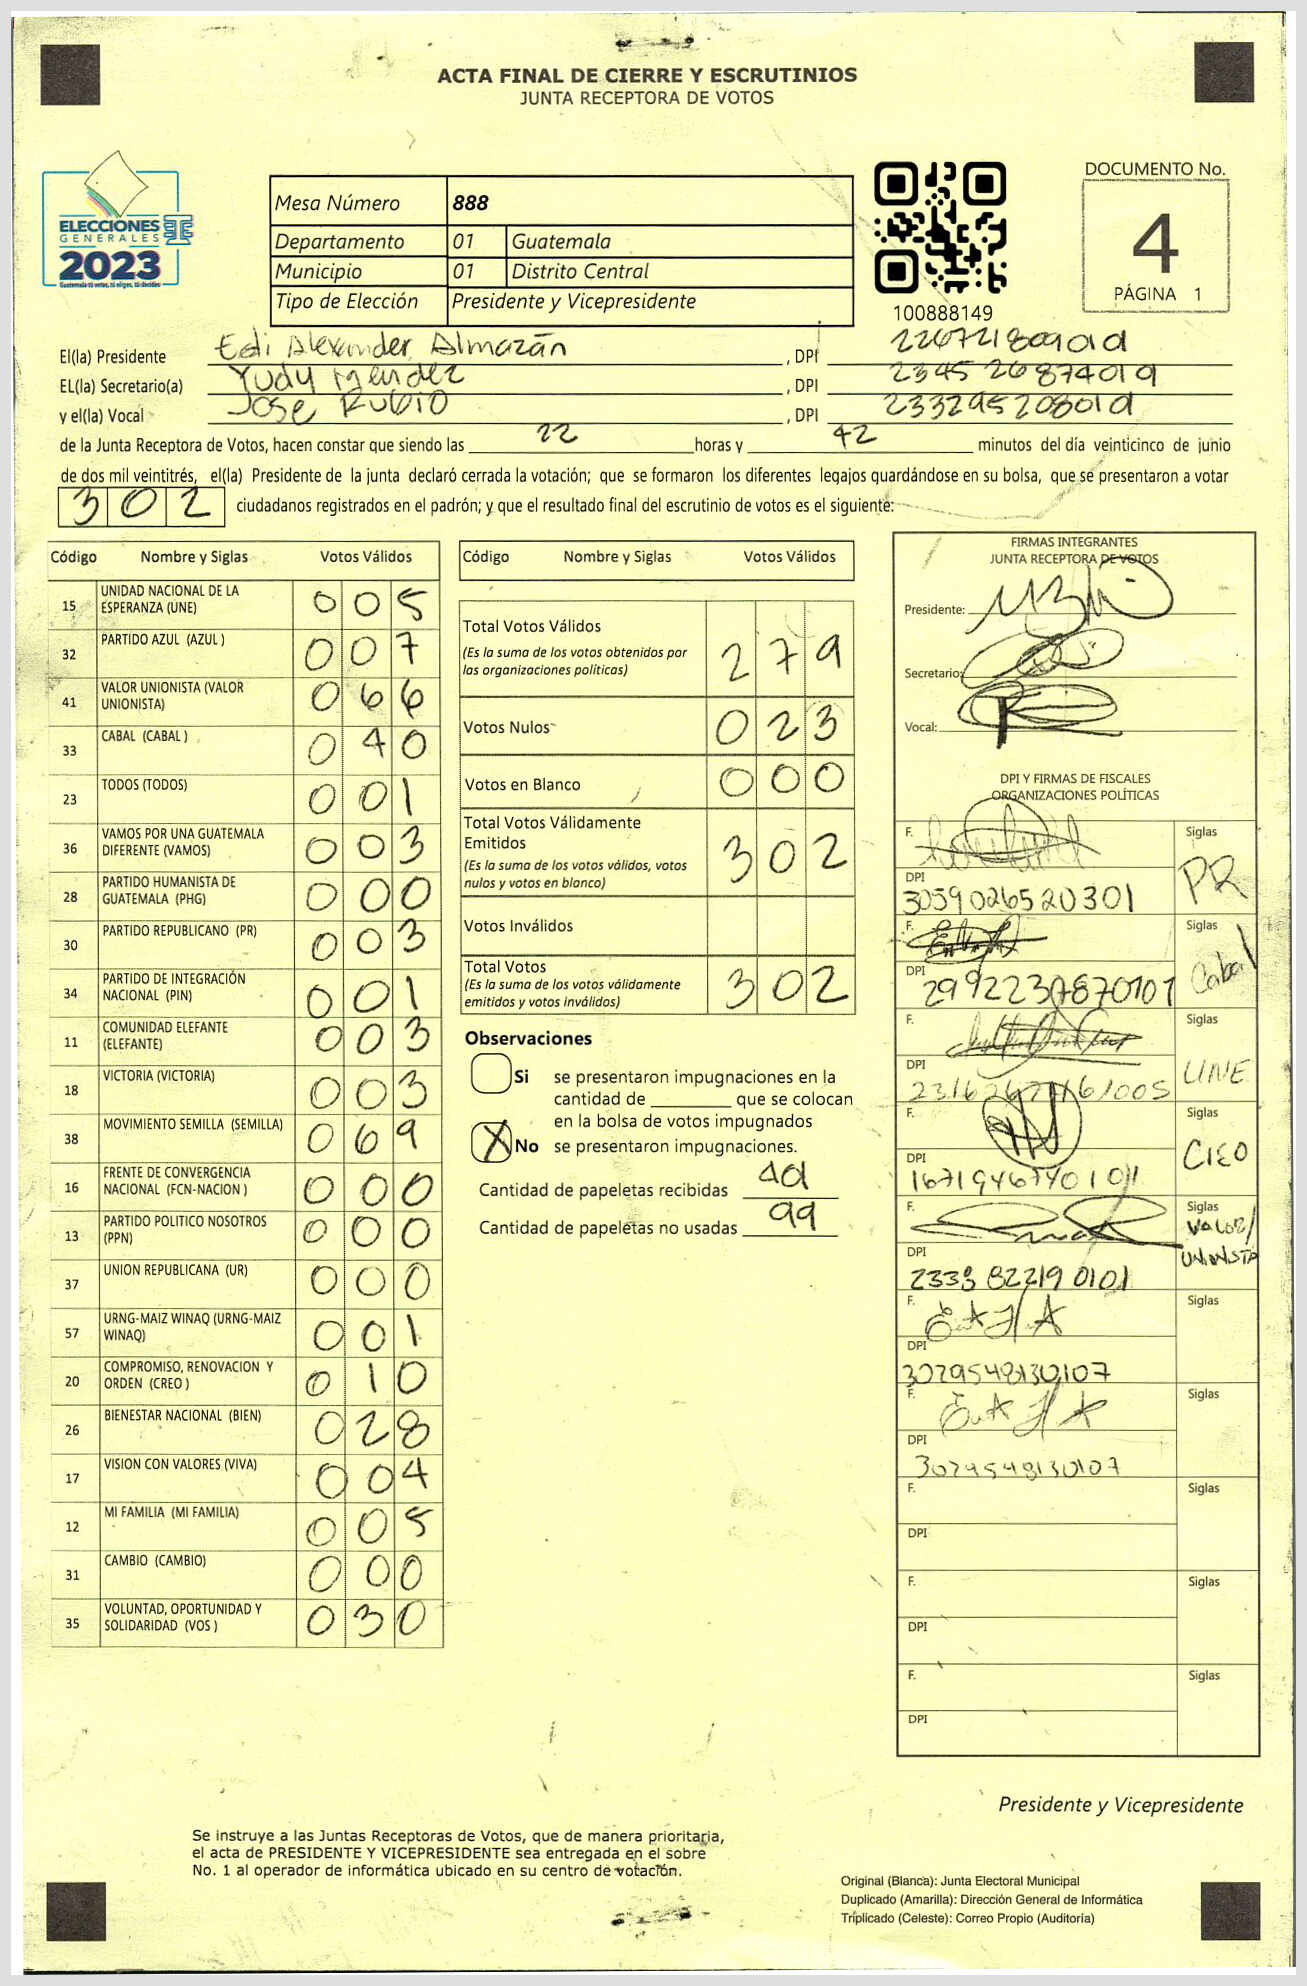 ACTA FINAL DE CIERRE Y ESCRUTINIOS
JUNTA RECEPTORA DE VOTOS
ELECCIONES
GENERALES
2023
Guatemala tú votas, tú eliges, tú decides
Mesa Número 888
Departamento 01 Guatemala
Municipio 01 Distrito Central
Tipo de Elección Presidente y Vicepresidente
100888149
DOCUMENTO No.
4
PÁGINA 1
El(la) Presidente Edi Alexander Almazán, DPI 226721809019
EL(la) Secretario(a) Yudy Mendez, DPI 234526874019
y el(la) Vocal Jose Rubio, DPI 233295208019
de la Junta Receptora de Votos, hacen constar que siendo las 22 horas y 42 minutos del día veinticinco de junio
de dos mil veintitrés, el(la) Presidente de la junta declaró cerrada la votación; que se formaron los diferentes legajos guardándose en su bolsa, que se presentaron a votar
302 ciudadanos registrados en el padrón; y que el resultado final del escrutinio de votos es el siguiente:
Código Nombre y Siglas Votos Válidos
15 UNIDAD NACIONAL DE LA ESPERANZA (UNE) 005
32 PARTIDO AZUL (AZUL ) 007
41 VALOR UNIONISTA (VALOR UNIONISTA) 066
33 CABAL (CABAL ) 040
23 TODOS (TODOS) 001
36 VAMOS POR UNA GUATEMALA DIFERENTE (VAMOS) 003
28 PARTIDO HUMANISTA DE GUATEMALA (PHG) 000
30 PARTIDO REPUBLICANO (PR) 003
34 PARTIDO DE INTEGRACIÓN NACIONAL (PIN) 001
11 COMUNIDAD ELEFANTE (ELEFANTE) 003
18 VICTORIA (VICTORIA) 003
38 MOVIMIENTO SEMILLA (SEMILLA) 069
16 FRENTE DE CONVERGENCIA NACIONAL (FCN-NACION ) 000
13 PARTIDO POLITICO NOSOTROS (PPN) 000
37 UNION REPUBLICANA (UR) 000
57 URNG-MAIZ WINAQ (URNG-MAIZ WINAQ) 001
20 COMPROMISO, RENOVACION Y ORDEN (CREO ) 010
26 BIENESTAR NACIONAL (BIEN) 028
17 VISION CON VALORES (VIVA) 004
12 MI FAMILIA (MI FAMILIA) 005
31 CAMBIO (CAMBIO) 000
35 VOLUNTAD, OPORTUNIDAD Y SOLIDARIDAD (VOS ) 030
Código Nombre y Siglas Votos Válidos
Total Votos Válidos 279
(Es la suma de los votos obtenidos por
las organizaciones políticas)
Votos Nulos 023
Votos en Blanco 000
Total Votos Válidamente
Emitidos 302
(Es la suma de los votos válidos, votos
nulos y votos en blanco)
Votos Inválidos
Total Votos 302
(Es la suma de los votos válidamente
emitidos y votos inválidos)
Observaciones
Si se presentaron impugnaciones en la
cantidad de ________ que se colocan
en la bolsa de votos impugnados
X No se presentaron impugnaciones.
Cantidad de papeletas recibidas 401
Cantidad de papeletas no usadas 99
FIRMAS INTEGRANTES
JUNTA RECEPTORA DE VOTOS
Presidente:
Secretario:
Vocal:
DPI Y FIRMAS DE FISCALES
ORGANIZACIONES POLÍTICAS
F. Siglas PR
DPI 3059026520301
F. Siglas Cabal
DPI 2992230870101
F. Siglas UNE
DPI
F. Siglas CREO
DPI
F. Siglas VALOR/
UNIONISTA
DPI 2338822190101
F. Siglas
DPI 3079548130107
F. Siglas
DPI 3079548130107
F. Siglas
DPI
F. Siglas
DPI
F. Siglas
DPI
Presidente y Vicepresidente
Se instruye a las Juntas Receptoras de Votos, que de manera prioritaria,
el acta de PRESIDENTE Y VICEPRESIDENTE sea entregada en el sobre
No. 1 al operador de informática ubicado en su centro de votación.
Original (Blanca): Junta Electoral Municipal
Duplicado (Amarilla): Dirección General de Informática
Triplicado (Celeste): Correo Propio (Auditoría)